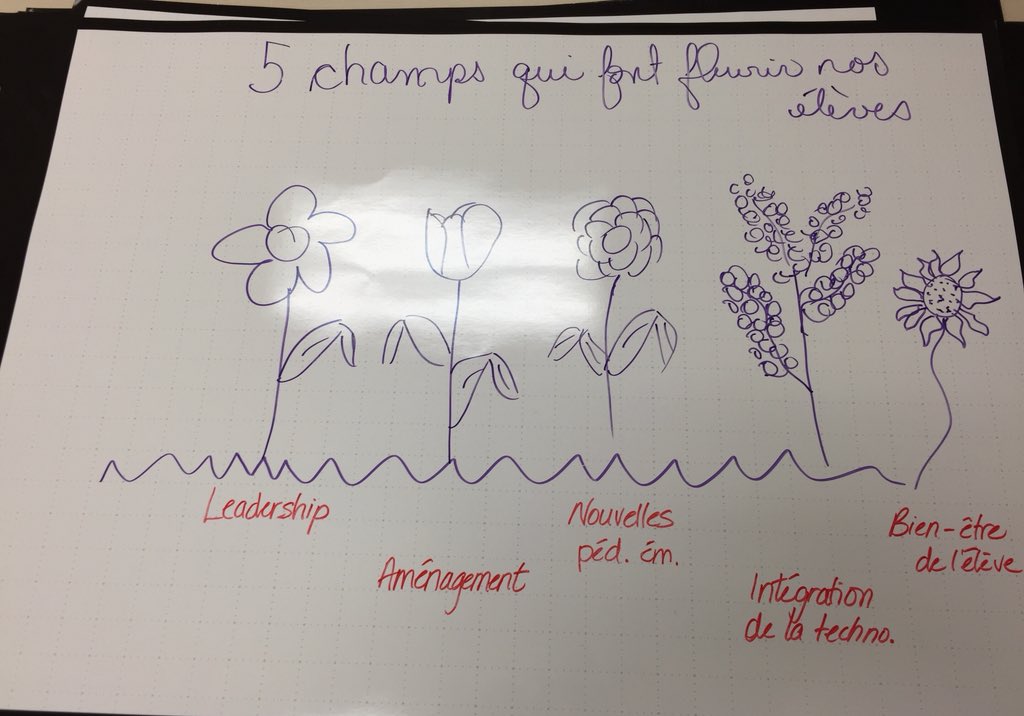 5 champs qui font fleurir nos
élèves
Leadership
Aménagement
Nouvelles
péd. ém.
Intégration
de la techno.
Bien-être
de l'élève